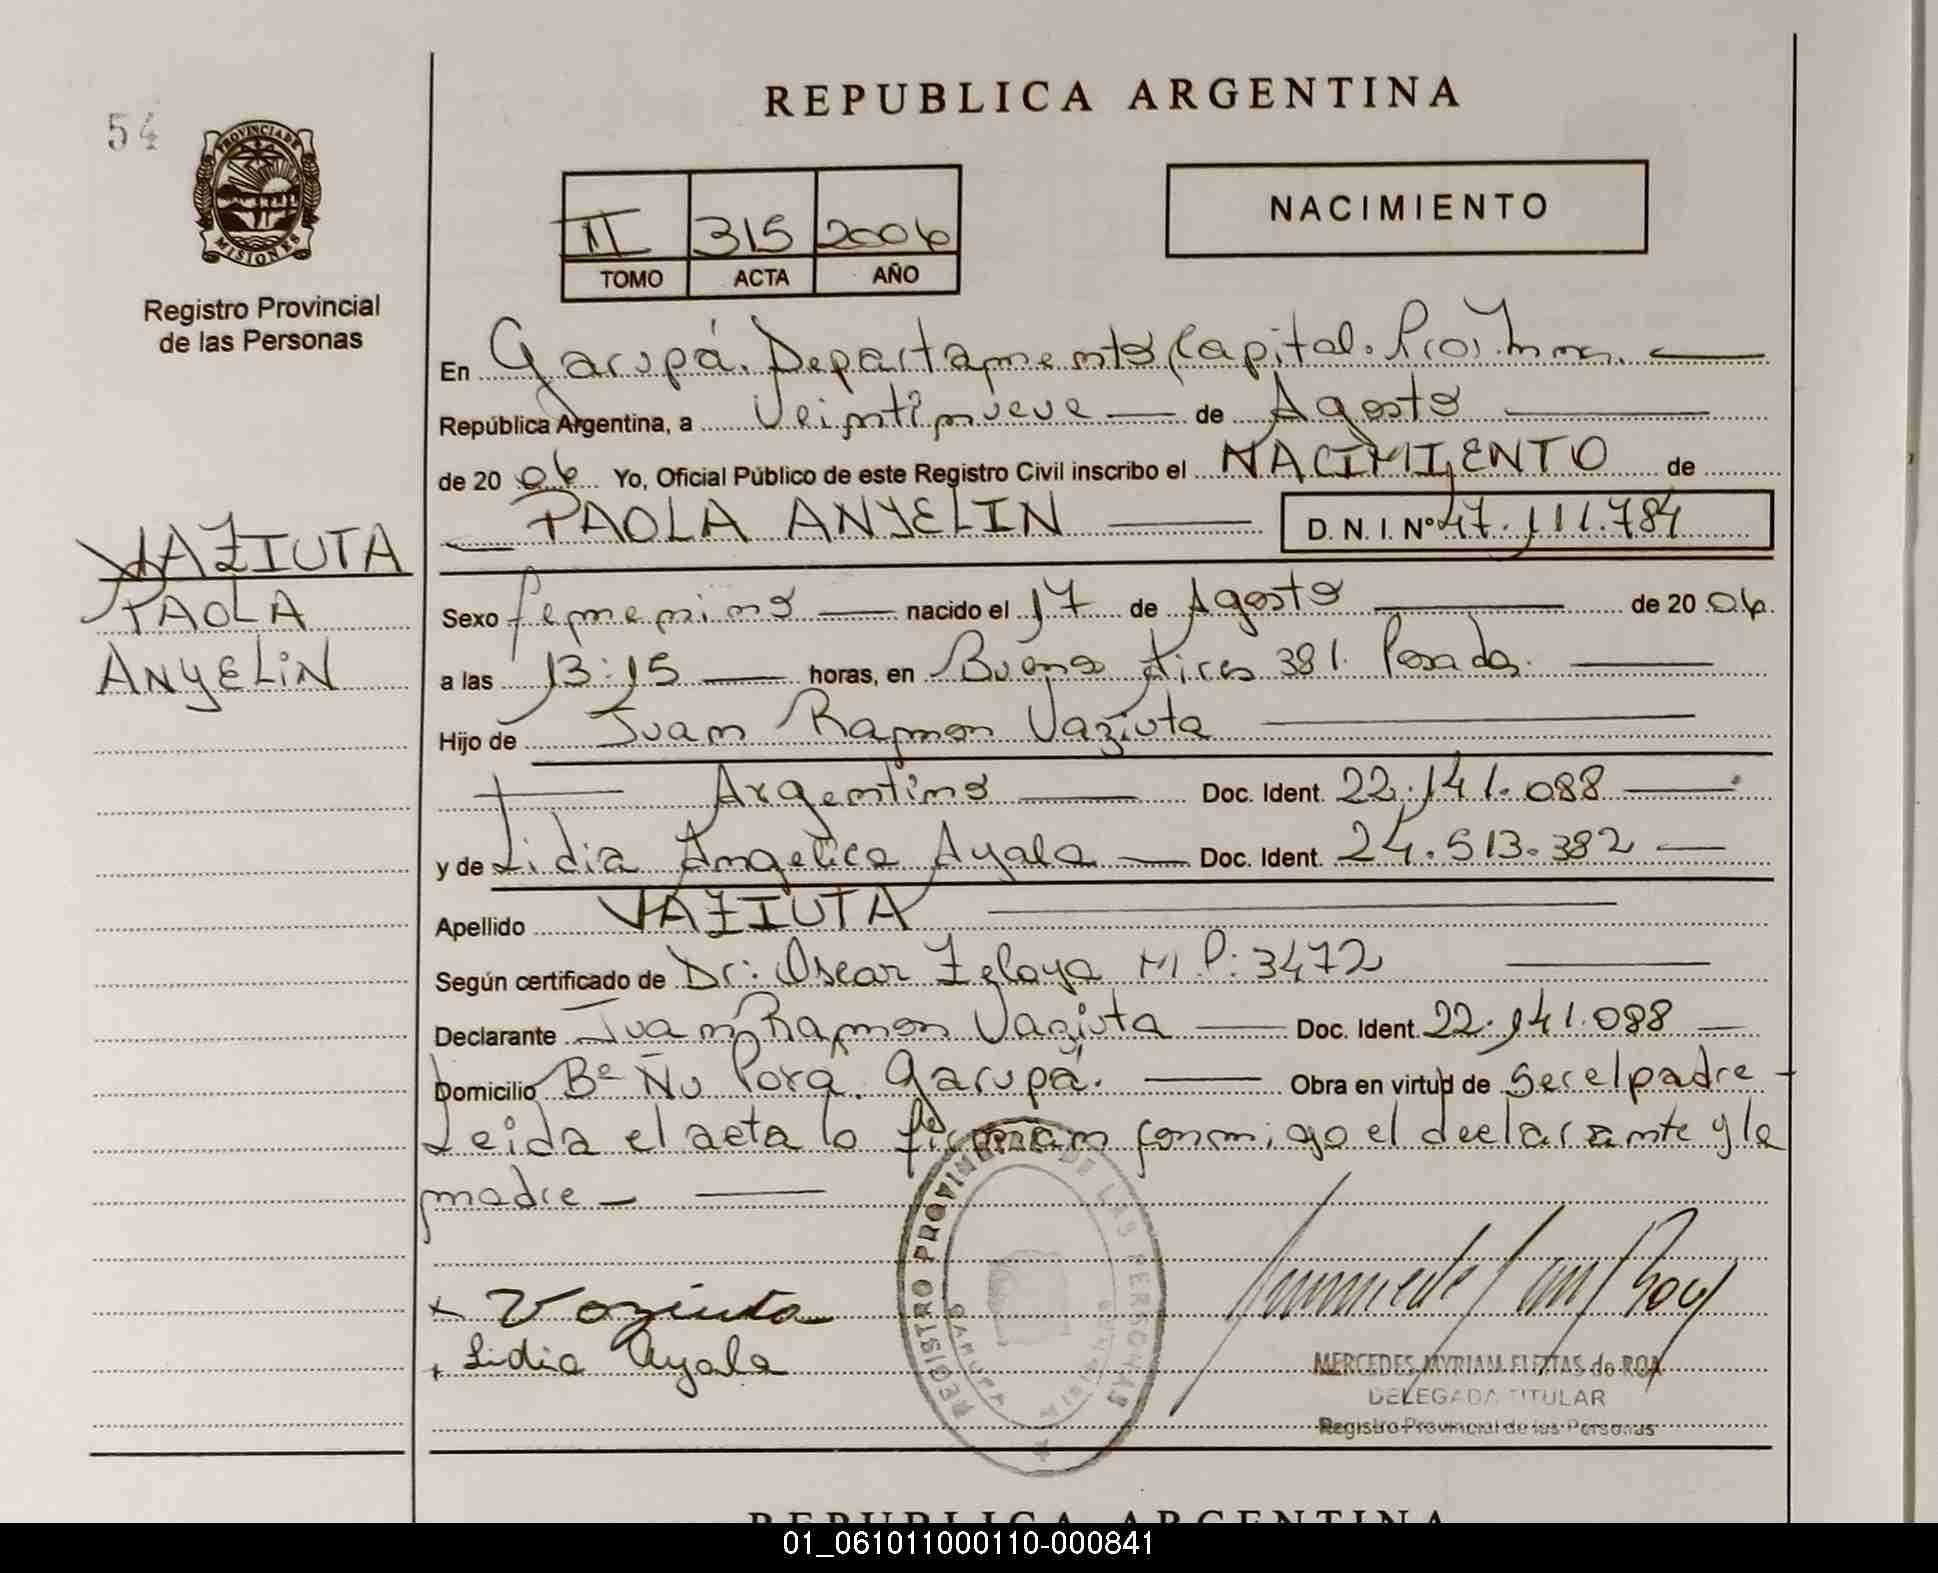 REPUBLICA ARGENTINA
54
PROVINCIA DE MISIONES
Registro Provincial
de las Personas
II 315 2006
TOMO ACTA AÑO
NACIMIENTO
En Garupá. Departamento Capital. Prov. Mnes.
República Argentina, a Veintinueve de Agosto
de 2006 Yo, Oficial Público de este Registro Civil inscribo el NACIMIENTO de
PAOLA ANYELIN D. N. I. Nº 47.111.784
VAZIUTA
PAOLA
ANYELIN
Sexo femenino nacido el 17 de Agosto de 2006.
a las 13:15 horas, en Buenos Aires 381. Posadas.
Hijo de Juan Ramon Vaziuta
Argentino Doc. Ident. 22.141.088
y de Lidia Angelica Ayala Doc. Ident. 24.513.382
Apellido VAZIUTA
Según certificado de Dr: Oscar Zelaya M.P: 3472
Declarante Juan Ramon Vaziuta Doc. Ident. 22.141.088
Domicilio Bº Ñu Porá. Garupá. Obra en virtud de ser el padre
Leida el acta la firman conmigo el declarante y la
madre
Vaziuta
Lidia Ayala
REGISTRO PROVINCIAL DE LAS PERSONAS
GARUPA
MISIONES
MERCEDES MYRIAM FLEITAS de ROA
DELEGADA TITULAR
Registro Provincial de las Personas
REPUBLICA ARGENTINA
01_061011000110-000841